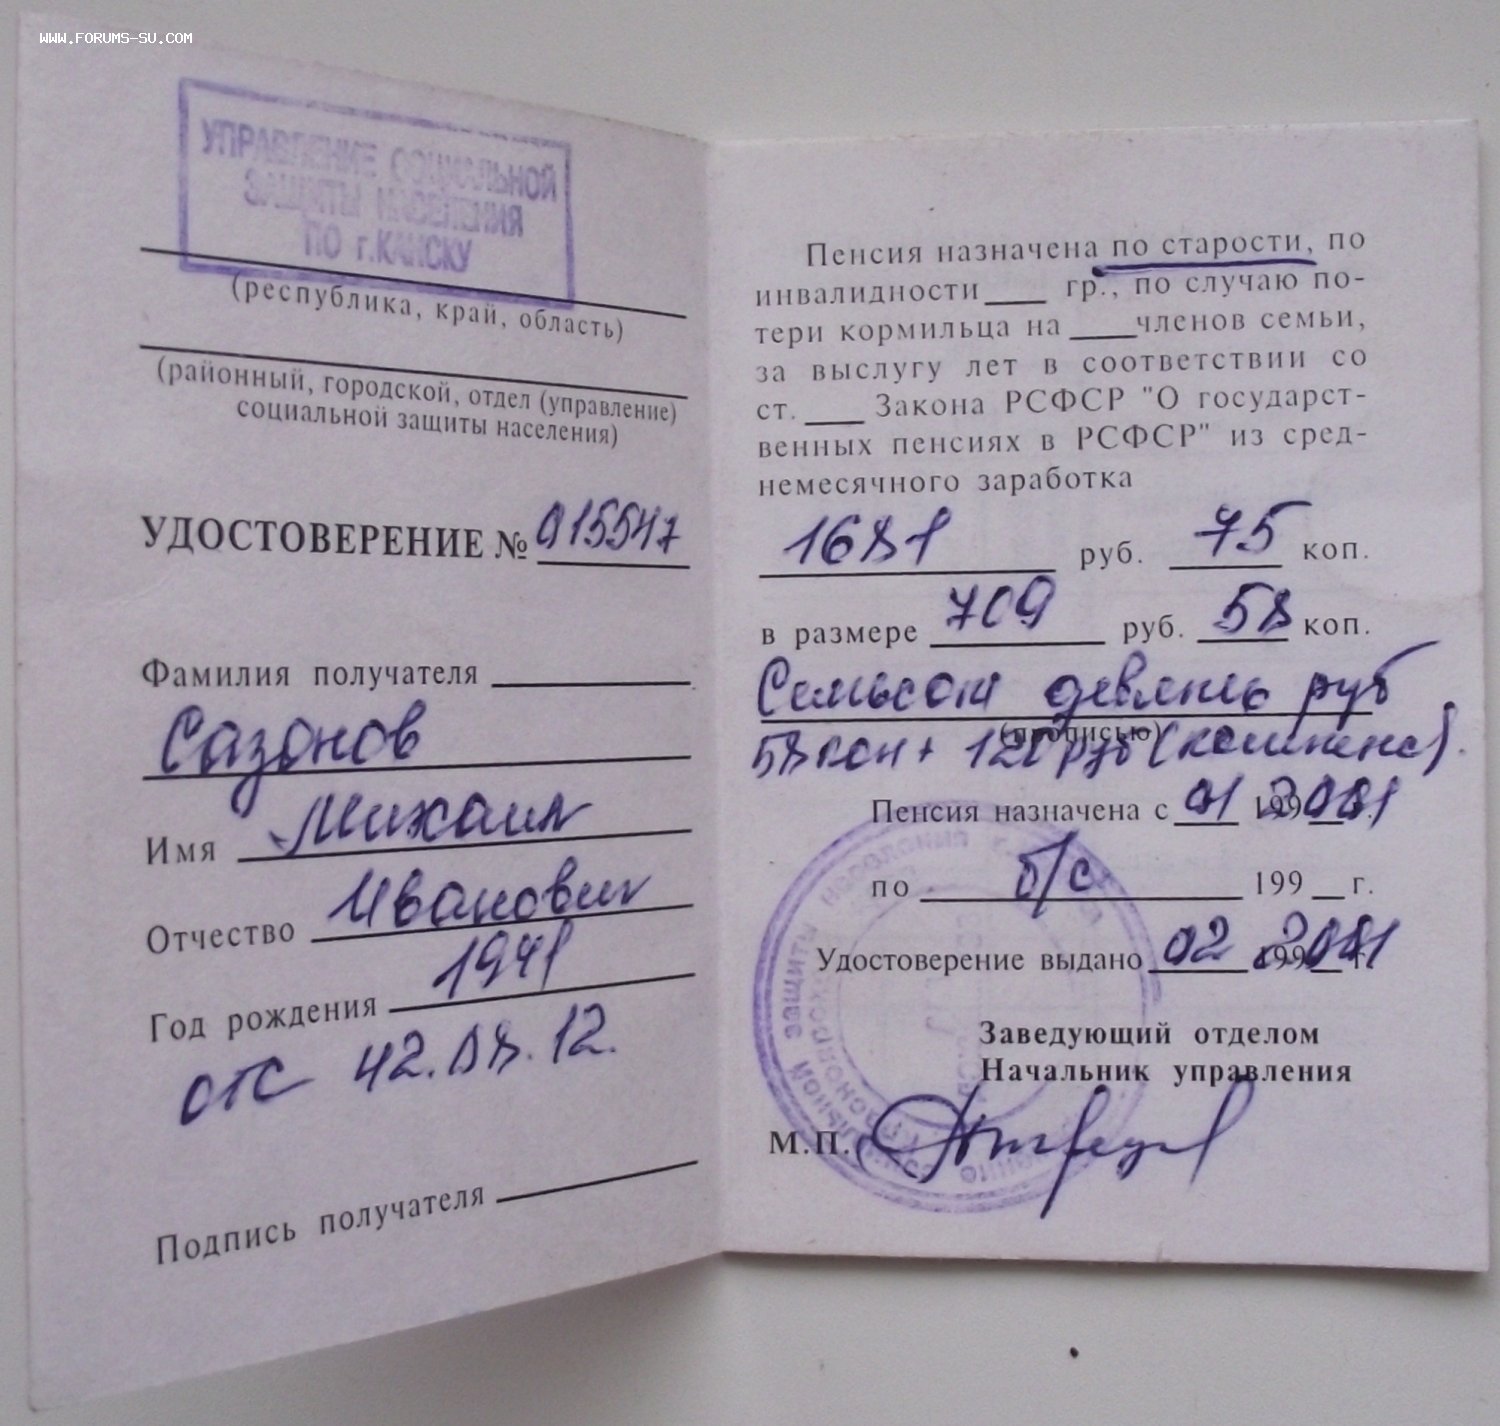 www.FORUMS-SU.COM
УПРАВЛЕНИЕ СОЦИАЛЬНОЙ
ЗАЩИТЫ НАСЕЛЕНИЯ
ПО г.КАНСКУ
(республика, край, область)
(районный, городской, отдел (управление)
социальной защиты населения)
УДОСТОВЕРЕНИЕ № 015547
Фамилия получателя
Сазонов
Имя Михаил
Отчество Иванович
Год рождения 1941
ОТС 42.08.12.
Подпись получателя
Пенсия назначена по старости, по
инвалидности ___ гр., по случаю по-
тери кормильца на ___ членов семьи,
за выслугу лет в соответствии со
ст. ___ Закона РСФСР "О государст-
венных пенсиях в РСФСР" из сред-
немесячного заработка
1681 руб. 75 коп.
в размере 709 руб. 58 коп.
Семьсот девять руб
(прописью)
58 коп + 120 руб (компенс).
Пенсия назначена с 01 2001
по б/с 199 __ г.
Удостоверение выдано 02 2001
Заведующий отделом
Начальник управления
М.П.